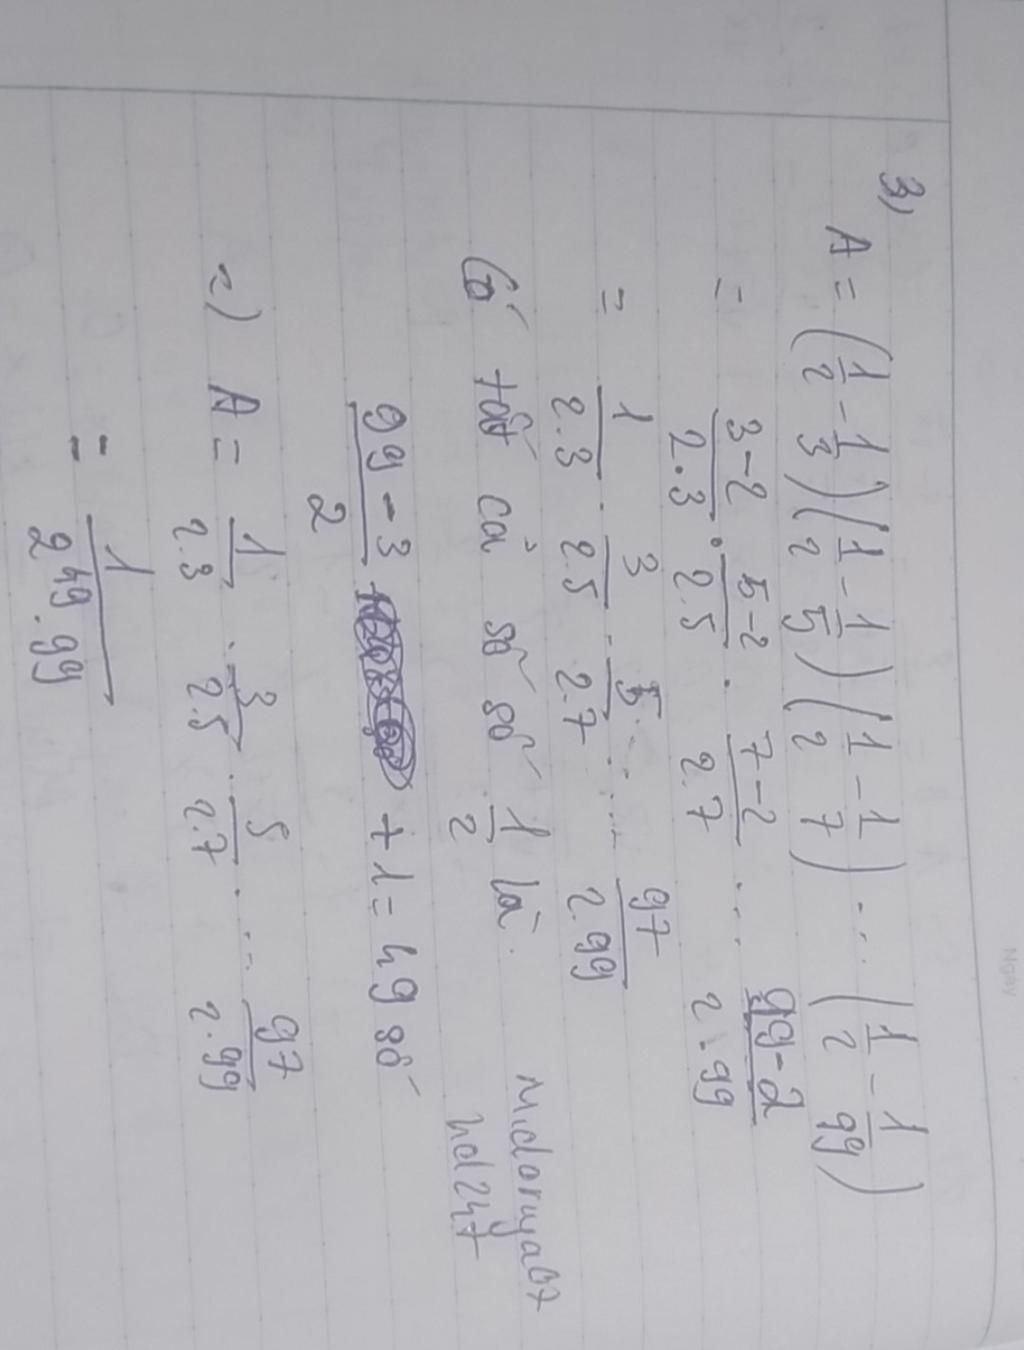 3)
A = (1/2 - 1/3)(1/2 - 1/5)(1/2 - 1/7) ... (1/2 - 1/99)
= 3-2/2.3 . 5-2/2.5 . 7-2/2.7 ... 99-2/2.99
= 1/2.3 . 3/2.5 . 5/2.7 ... 97/2.99
Có tất cả số số 1/2 là.
99-3/2 + 1 = 49 số
Midoruya07
hd247
=) A = 1/2.3 . 3/2.5 . 5/2.7 ... 97/2.99
= 1/2^49.99
Ngày